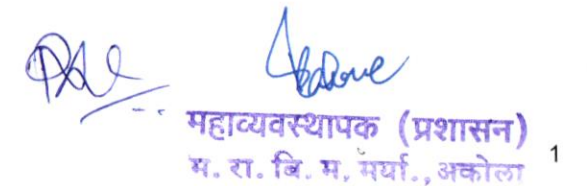 महाव्यवस्थापक (प्रशासन)
म. रा. बि. म. मर्या., अकोला
1